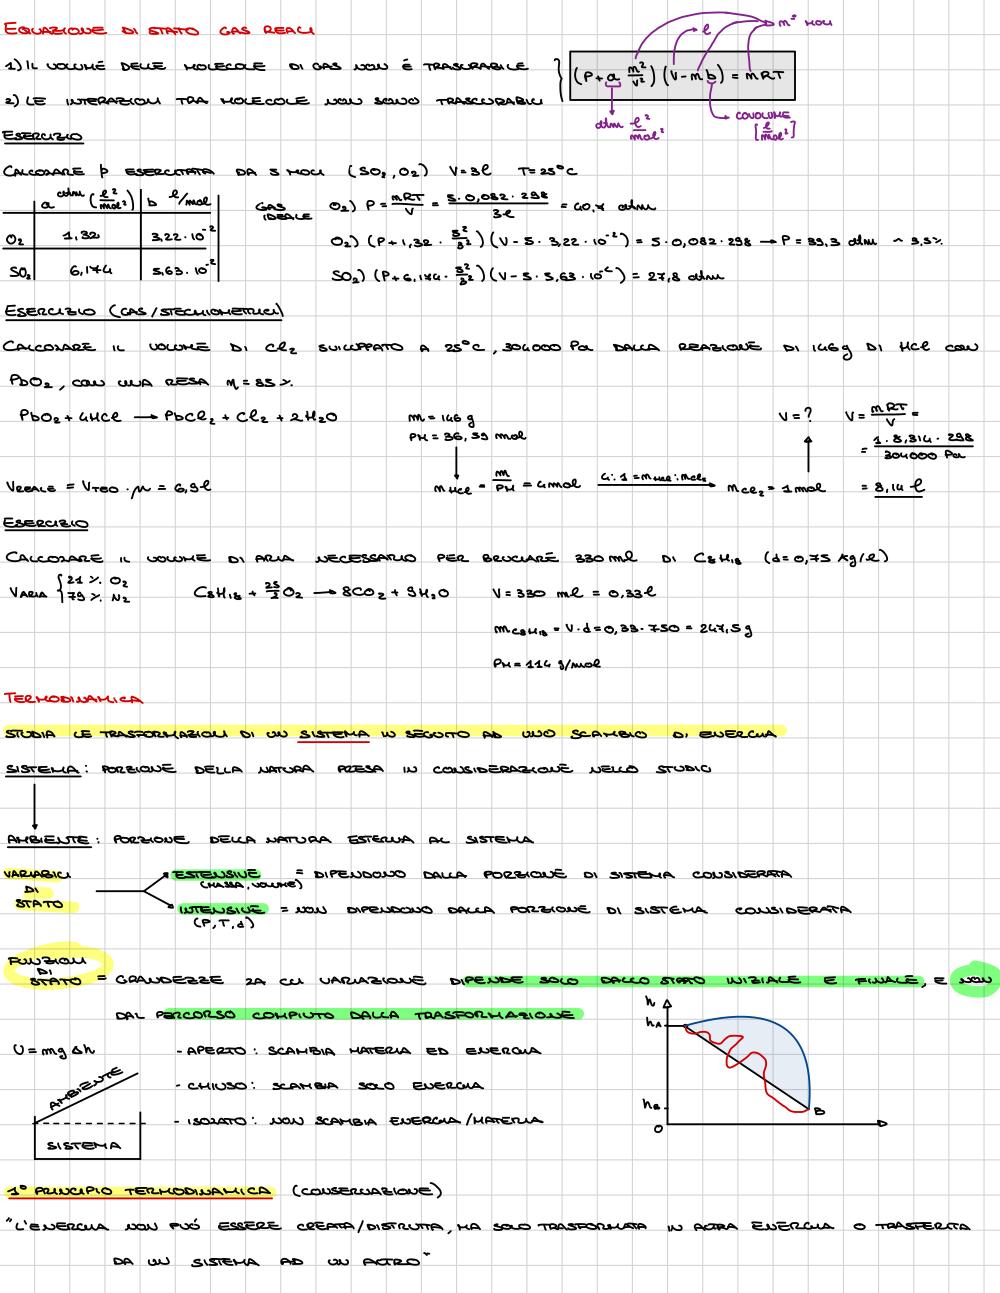 EQUAZIONE DI STATO GAS REALI
1) IL VOLUME DELLE MOLECOLE DI GAS NON É TRASCURABILE
2) LE INTERAZIONI TRA MOLECOLE NON SONO TRASCURABILI
(P + a n²/V²) (V - n b) = nRT
l
n° MOLI
atm l²/mol²
COVOLUME [l/mol²]
ESERCIZIO
CALCOLARE P ESERCITATA DA 5 MOLI (SO₂, O₂) V=3l T=25°C
a atm (l²/mol²) b l/mol
O₂ 1,32 3,22·10⁻²
SO₂ 6,174 5,63·10⁻²
GAS IDEALE
O₂) P = nRT/V = 5·0,082·298/3l = 40,7 atm
O₂) (P + 1,32 · 5²/3²) (V - 5 · 3,22·10⁻²) = 5·0,082·298 → P = 39,3 atm ~ 3,5%
SO₂) (P + 6,174 · 5²/3²) (V - 5 · 5,63·10⁻²) = 27,8 atm
ESERCIZIO (GAS/STECHIOMETRICI)
CALCOLARE IL VOLUME DI Cl₂ SVILUPPATO A 25°C, 304000 Pa DALLA REAZIONE DI 146g DI HCl CON
PbO₂, CON UNA RESA η = 85%.
PbO₂ + 4HCl → PbCl₂ + Cl₂ + 2H₂O
m = 146 g
PM = 36,59 mol
V = ? V = nRT/V =
= 1·8,314·298/304000 Pa
VREALE = VTEO · μ = 6,9l
nHCl = m/PM = 4mol
4:1 = nHCl : nCl₂
nCl₂ = 1mol
= 8,14 l
ESERCIZIO
CALCOLARE IL VOLUME DI ARIA NECESSARIO PER BRUCIARE 330 ml DI C₈H₁₈ (d = 0,75 kg/l)
VARIA { 21% O₂
79% N₂
C₈H₁₈ + 25/2 O₂ → 8CO₂ + 9H₂O
V = 330 ml = 0,33l
mC₈H₁₈ = V·d = 0,33·750 = 247,5g
PM = 114 g/mol
TERMODINAMICA
STUDIA LE TRASFORMAZIONI DI UN SISTEMA IN SEGUITO AD UNO SCAMBIO DI ENERGIA
SISTEMA: PORZIONE DELLA NATURA PRESA IN CONSIDERAZIONE NELLO STUDIO
AMBIENTE: PORZIONE DELLA NATURA ESTERNA AL SISTEMA
VARIABILI DI STATO
ESTENSIVE = DIPENDONO DALLA PORZIONE DI SISTEMA CONSIDERATA
(MASSA, VOLUME)
INTENSIVE = NON DIPENDONO DALLA PORZIONE DI SISTEMA CONSIDERATA
(P, T, d)
FUNZIONI DI STATO = GRANDEZZE LA CUI VARIAZIONE DIPENDE SOLO DALLO STATO INIZIALE E FINALE, E NON
DAL PERCORSO COMPIUTO DALLA TRASFORMAZIONE
U = mgΔh
- APERTO: SCAMBIA MATERIA ED ENERGIA
- CHIUSO: SCAMBIA SOLO ENERGIA
- ISOLATO: NON SCAMBIA ENERGIA/MATERIA
AMBIENTE
SISTEMA
h
hA
hB
B
O
1° PRINCIPIO TERMODINAMICA (CONSERVAZIONE)
"L'ENERGIA NON PUÓ ESSERE CREATA/DISTRUTTA, MA SOLO TRASFORMATA IN ALTRA ENERGIA O TRASFERITA
DA UN SISTEMA AD UN ALTRO"